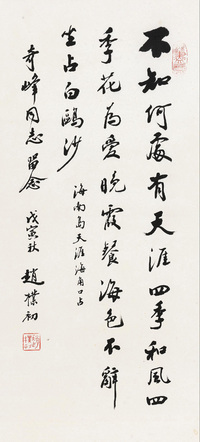 不知何處有天涯四季和風四
季花為愛晚霞餐海色不辭
坐占白鷗沙
海南島天涯海角口占
奇峰同志留念
戊寅秋 趙樸初